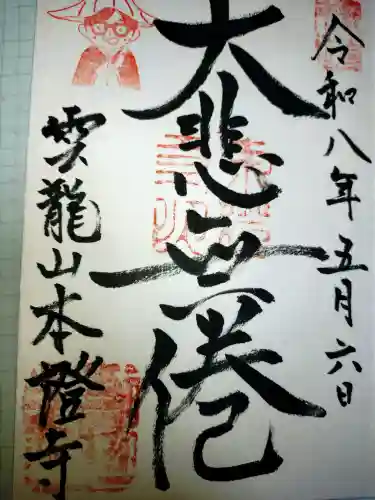 令和八年五月六日
大悲無倦
雲龍山本證寺